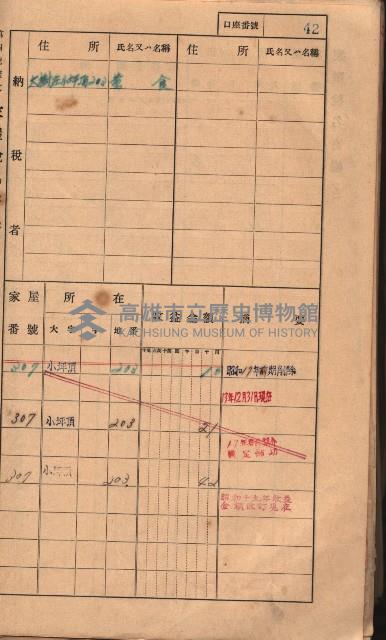 口座番號 42
住所 氏名又ハ名稱 住所 氏名又ハ名稱
納稅者
大樹庄小坪頂203 黃食
家屋番號 所在 大字 地番 收益金額 摘要
高雄市立歷史博物館
KAOHSIUNG MUSEUM OF HISTORY
307 小坪頂 203 18 昭和17年前期削除
17年12月31日現在
307 小坪頂 203 21
307 小坪頂 203 42
昭和十九年收益
金額改訂現在